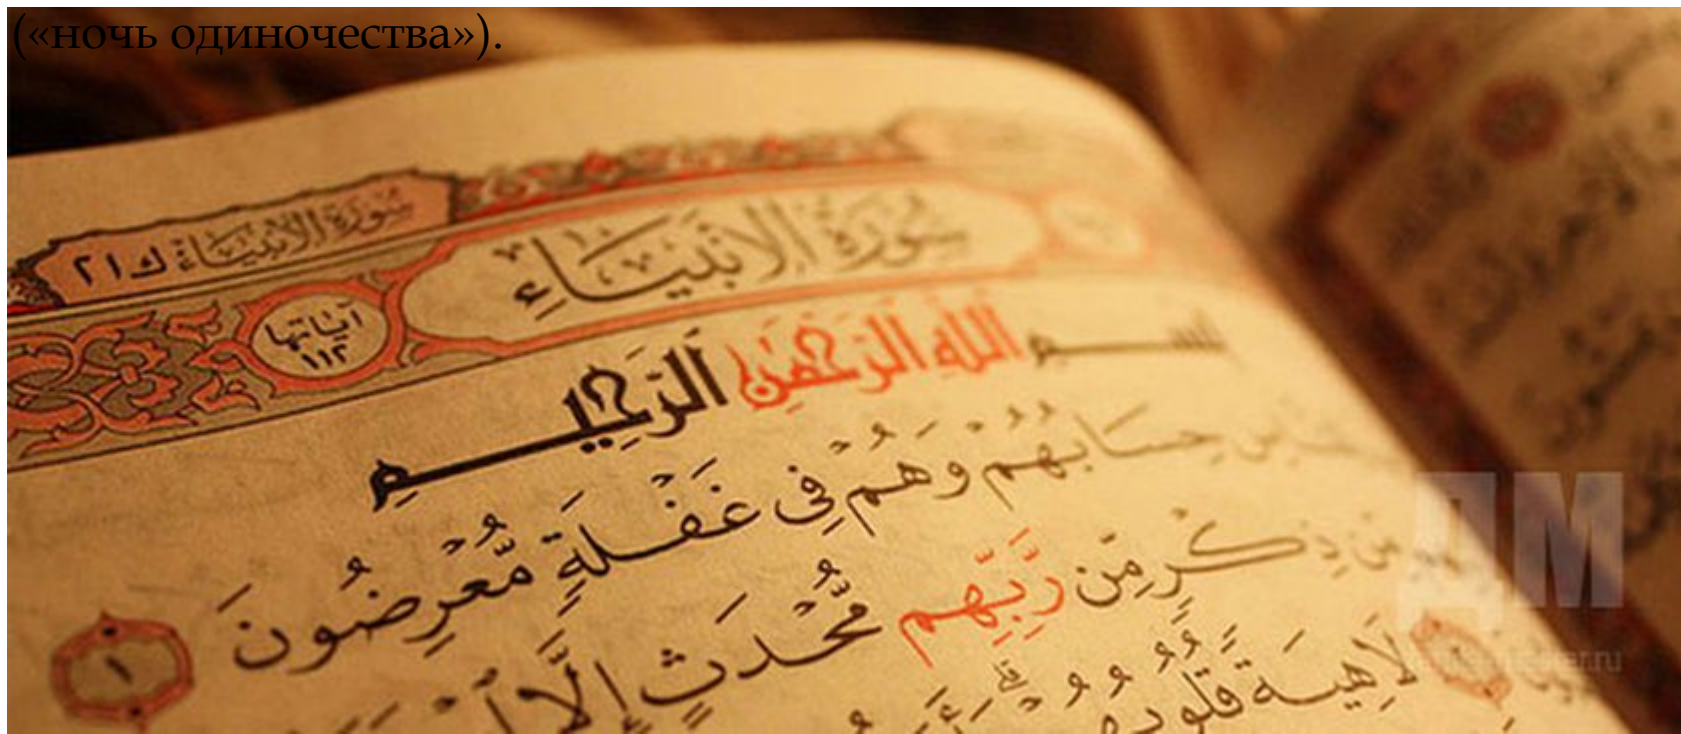 («ночь одиночества»).
سورة الأنبياء ك ٢١
سُورَةُ الأَنبِيَاءِ
آياتها
١١٢
بسم الله الرحمن الرحيم
حِسَابُهُمْ وَهُمْ فِى غَفْلَةٍ مُّعْرِضُونَ ١
ذِكْرٍ مِّن رَّبِّهِم مُّحْدَثٍ إِلَّا
لَاهِيَةً قُلُوبُهُمْ
ДМ